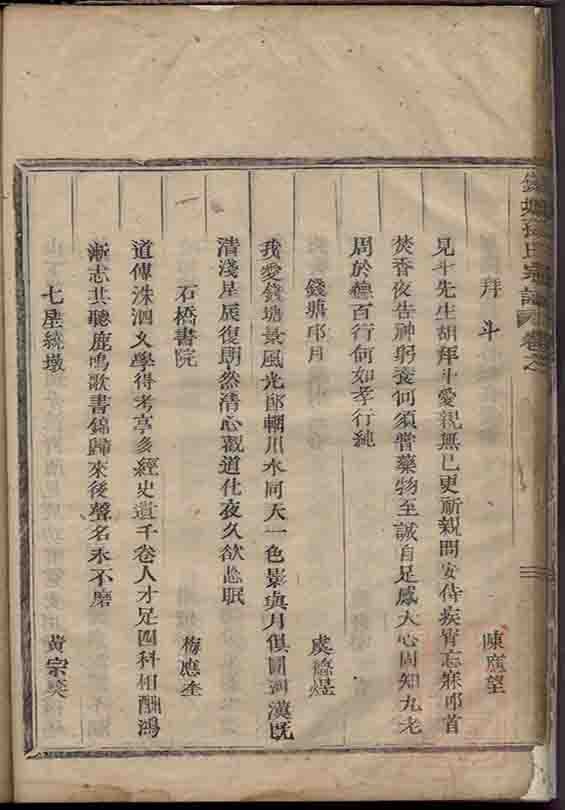 氏宗譜 卷之
拜斗 陳應望
見斗先生胡拜斗愛親無已更祈親問安侍疾寧忘寐首
焚香夜告神躬養何須嘗藥物至誠自足感天心固知九老
周於德百行何如孝行純
錢塘月 虞煜
我愛錢塘景風光輞川水同天一色影與月俱圓河漢既
清淺星辰復朗然清心觀道化夜久欲忘眠
石橋書院 梅應奎
道傳洙泗久學得考亭多經史遺千卷人才足四科相酬鴻
漸志共聽鹿鳴歌書錦歸來後聲名永不磨
七星繞墩 黃宗